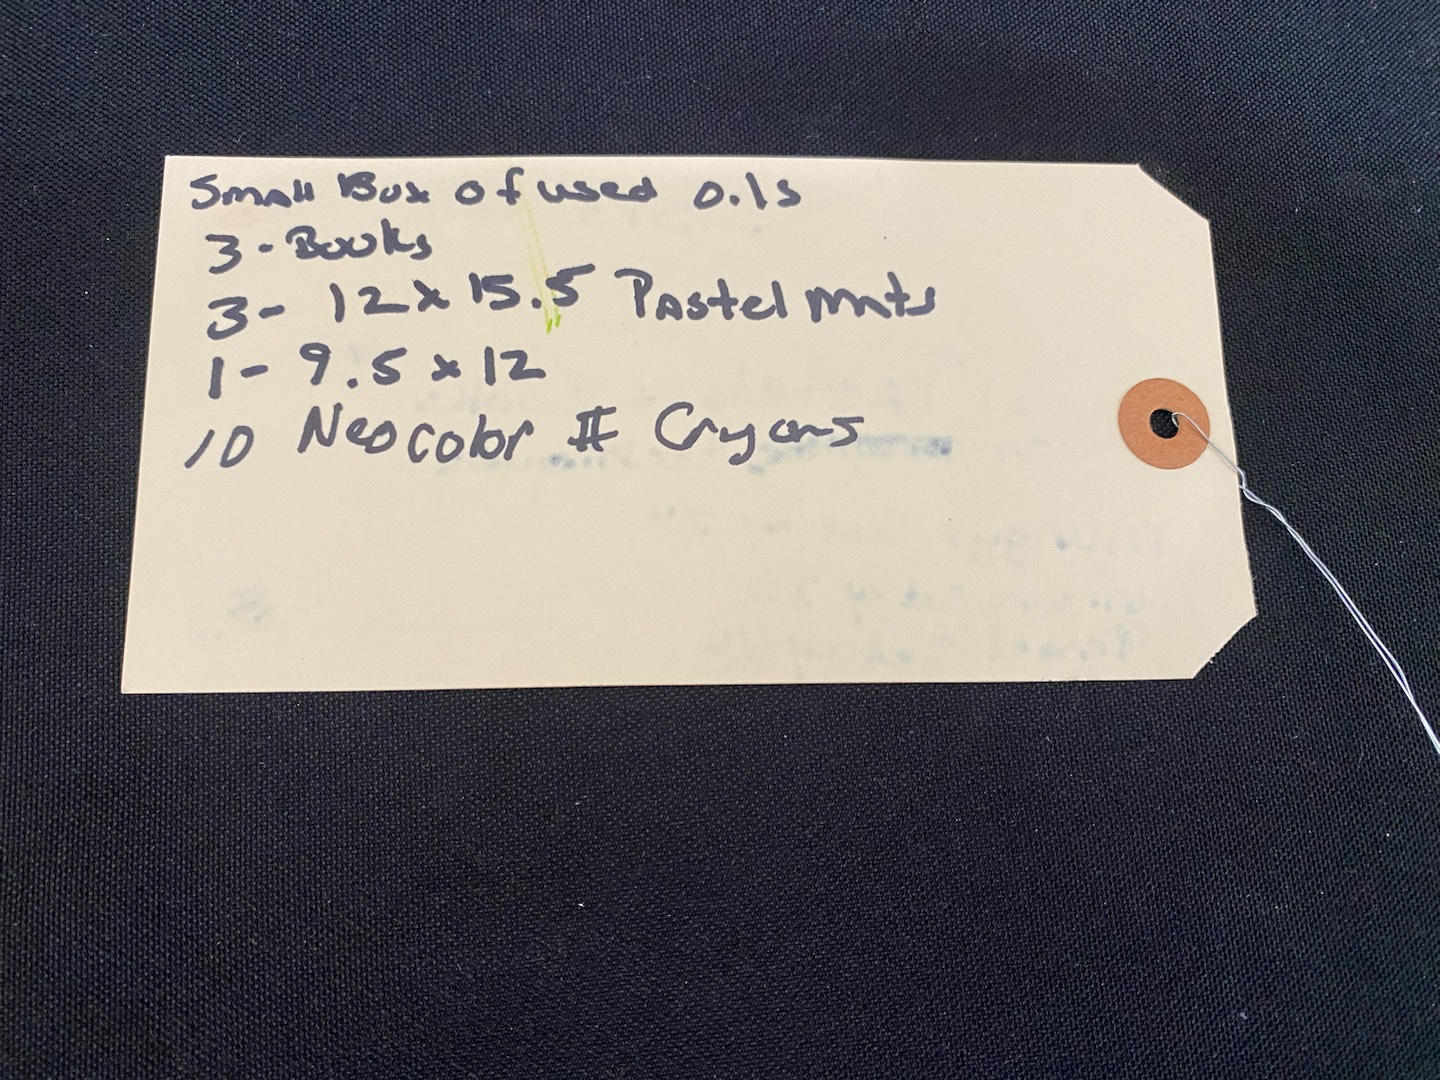 Small Box of used oils
3 - Books
3 - 12 x 15.5 Pastel mats
1 - 9.5 x 12
10 Neocolor II Cryons